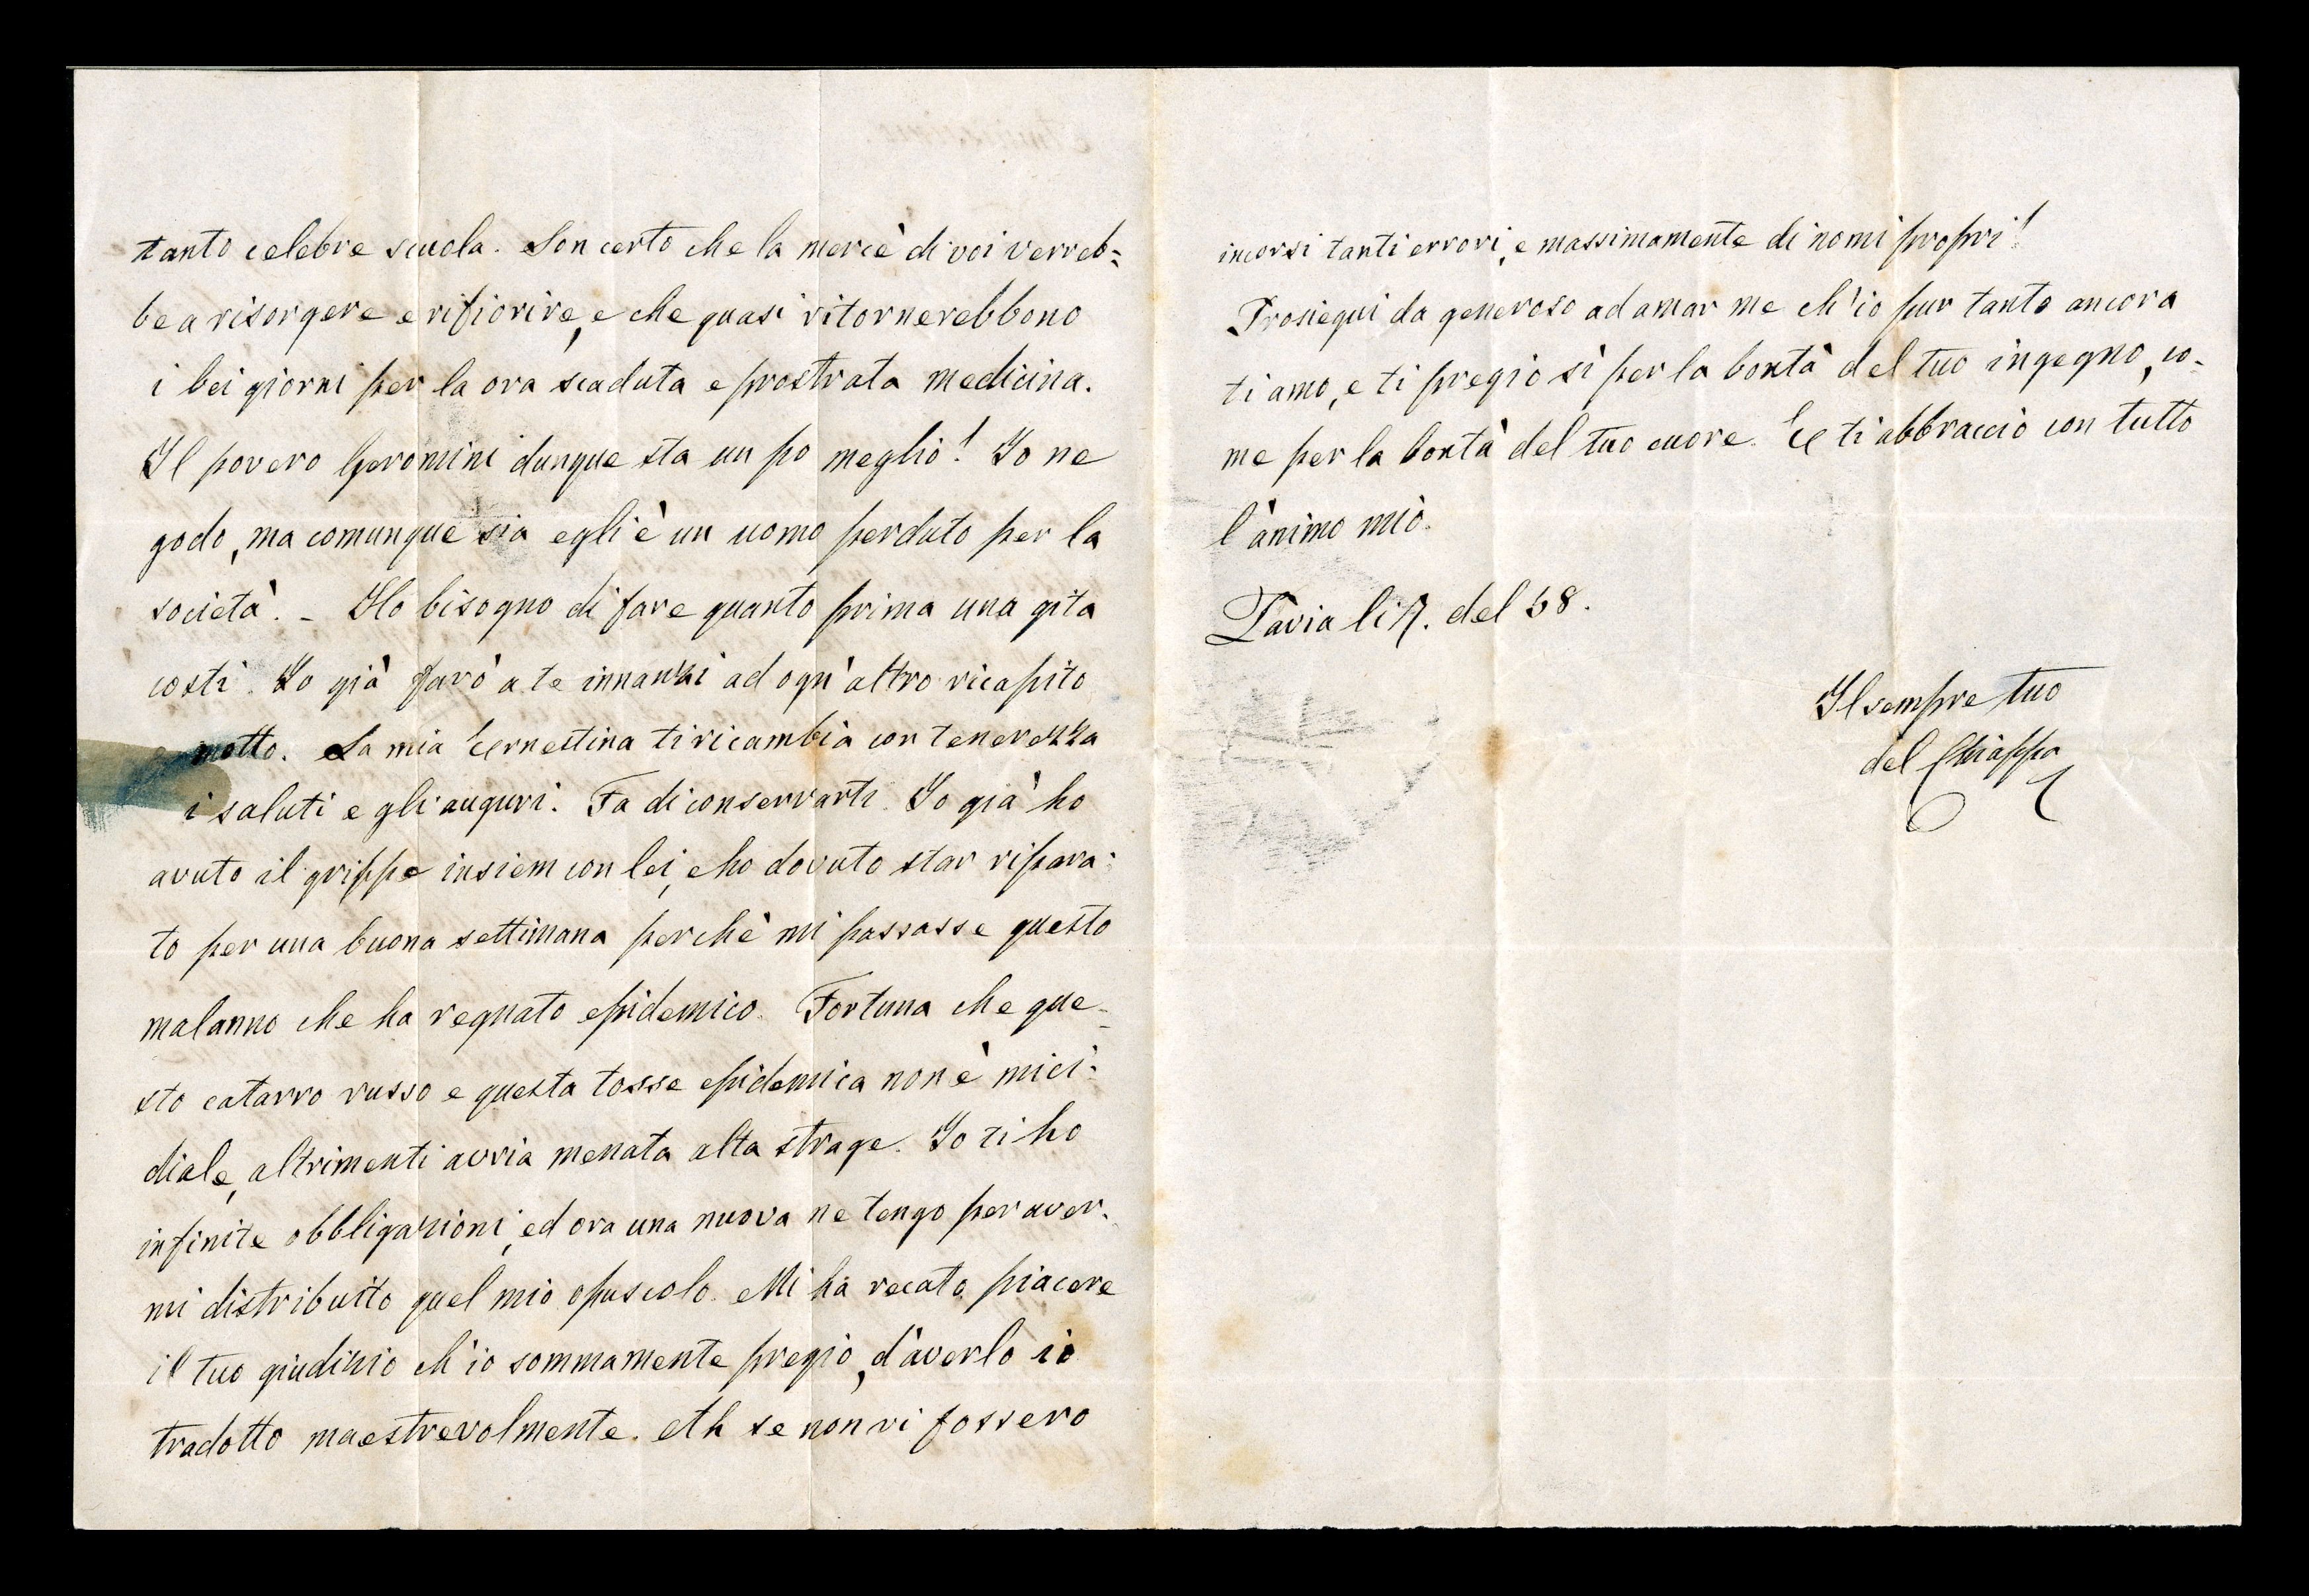 tanto celebre scuola. Son certo che la mercè di voi verreb=
be a risorgere e rifiorire, e che quasi ritornerebbono
i bei giorni per la ora scaduta e prostrata medicina.
Il povero Geromini dunque sta un po meglio! Io ne
godo, ma comunque sia egli è un uomo perduto per la
società. - Ho bisogno di fare quanto prima una gita
costì. Io già farò a te innanzi ad ogn'altro ricapito
e motto. La mia Ernestina ti ricambia con tenerezza
i saluti e gli auguri. Fa di conservarti. Io già ho
avuto il grippe insiem con lei, e ho dovuto star ripara-
to per una buona settimana perchè mi passasse questo
malanno che ha regnato epidemico. Fortuna che que-
sto catarro russo e questa tosse epidemica non è mici-
diale, altrimenti avria menata alta strage. Io ti ho
infinite obbligazioni, ed ora una nuova ne tengo per aver-
mi distribuito quel mio opuscolo. Mi ha recato piacere
il tuo giudizio ch'io sommamente pregio, d'averlo io
tradotto maestrevolmente. Ah se non vi fossero
incorsi tanti errori, e massimamente di nomi propri!
Prosiegui da generoso ad amar me ch'io pur tanto ancora
ti amo, e ti pregio sì per la bontà del tuo ingegno, co-
me per la bontà del tuo cuore. E ti abbraccio con tutto
l'animo mio.
Pavia li del 58.
Il sempre tuo
del Chiappa